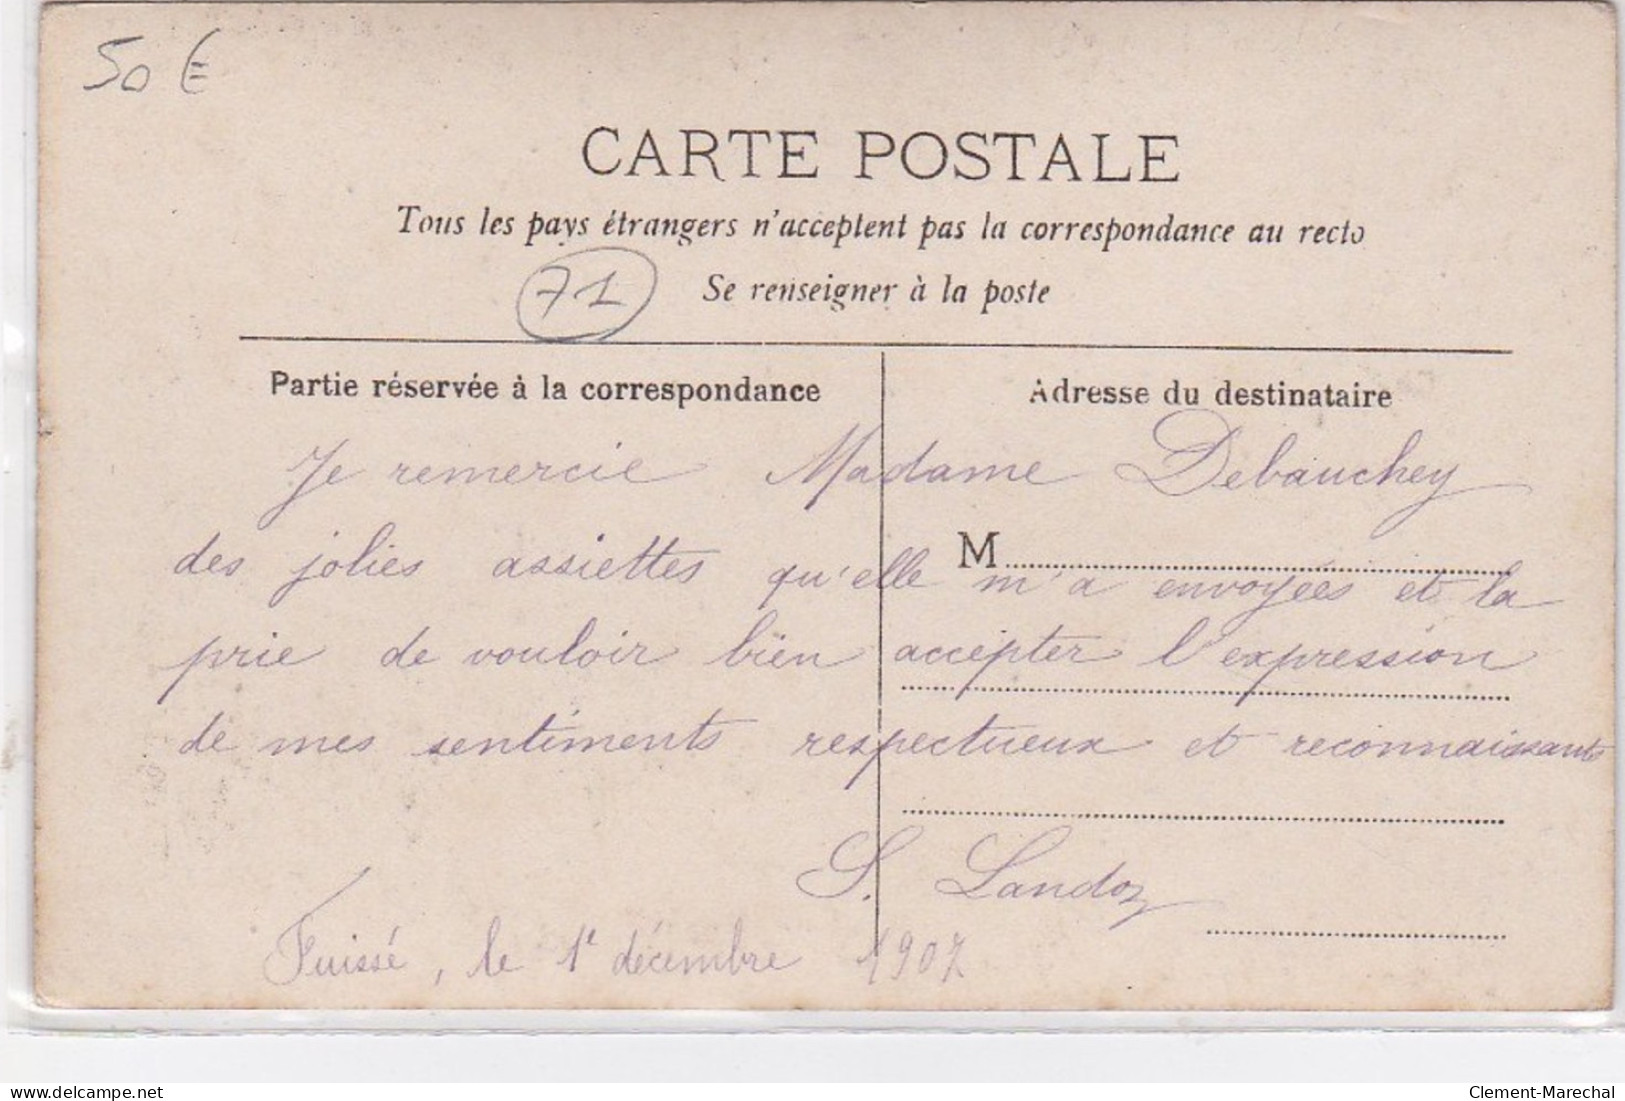 50 €
CARTE POSTALE
Tous les pays étrangers n'acceptent pas la correspondance au recto
71
Se renseigner à la poste
Partie réservée à la correspondance
Adresse du destinataire
Je remercie Madame Debauchey
M
des jolies assiettes qu'elle m'a envoyées et la
prie de vouloir bien accepter l'expression
de mes sentiments respectueux et reconnaissants
S. Landoz
Fuissé, le 1er décembre 1907
delcampe.net
Clement-Marechal